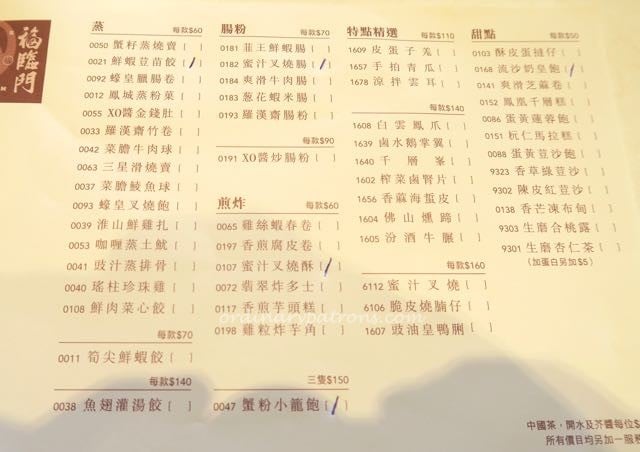 福臨門
蒸 每款$60
0050 蟹籽蒸燒賣 [ ]
0021 鮮蝦苋苗餃 [/]
0092 蠔皇腸腸卷 [ ]
0012 鳳城蒸粉菓 [ ]
0055 XO醬金錢肚 [ ]
0033 羅漢齋竹卷 [ ]
0042 菜膽牛肉球 [ ]
0063 三星滑燒賣 [ ]
0037 菜膽鯪魚球 [ ]
0093 蠔皇叉燒飽 [ ]
0039 淮山鮮雞扎 [ ]
0053 咖喱蒸土魷 [ ]
0041 豉汁蒸排骨 [ ]
0040 瑤柱珍珠雞 [ ]
0108 鮮肉菜心餃 [ ]
每款$70
0011 筍尖鮮蝦餃 [ ]
每款$140
0038 魚翅灌湯餃 [ ]
腸粉 每款$70
0181 韮王鮮蝦腸 [ ]
0182 蜜汁叉燒腸 [/]
0184 爽滑牛肉腸 [ ]
0183 葱花蝦米腸 [ ]
0193 羅漢齋腸粉 [ ]
每款$90
0191 XO醬炒腸粉 [ ]
煎炸 每款$60
0065 雞絲蝦春卷 [ ]
0197 香煎腐皮卷 [ ]
0107 蜜汁叉燒酥 [/]
0072 翡翠炸多士 [ ]
0117 香煎芋頭糕 [ ]
0198 雞粒炸芋角 [ ]
三隻$150
0047 蟹粉小籠飽 [/]
特點精選 每款$110
1609 皮蛋子羗 [ ]
1657 手拍青瓜 [ ]
1678 涼拌雲耳 [ ]
每款$140
1608 白雲鳳爪 [ ]
1639 鹵水鵝掌翼 [ ]
1640 千層峯 [ ]
1602 榨菜鹵腎片 [ ]
1656 香蔴海蜇皮 [ ]
1604 佛山燻蹄 [ ]
1605 汾酒牛𦟌 [ ]
每款$160
6112 蜜汁叉燒 [ ]
6106 脆皮燒腩仔 [ ]
1607 豉油皇鴨脷 [ ]
甜點 每款$50
0103 酥皮蛋撻仔 [ ]
0168 流沙奶皇飽 [/]
0141 爽滑芝蔴卷 [ ]
0152 鳳凰千層糕 [ ]
0086 蛋黃蓮蓉飽 [ ]
0151 杬仁馬拉糕 [ ]
0088 蛋黃荳沙飽 [ ]
9323 香草綠荳沙 [ ]
9302 陳皮紅荳沙 [ ]
0138 香芒凍布甸 [ ]
9303 生磨合桃露 [ ]
9301 生磨杏仁茶 [ ]
(加蛋白另加$5)
中國茶，開水及芥醬每位$
所有價目均另加一服務
ordinarypatrons.com